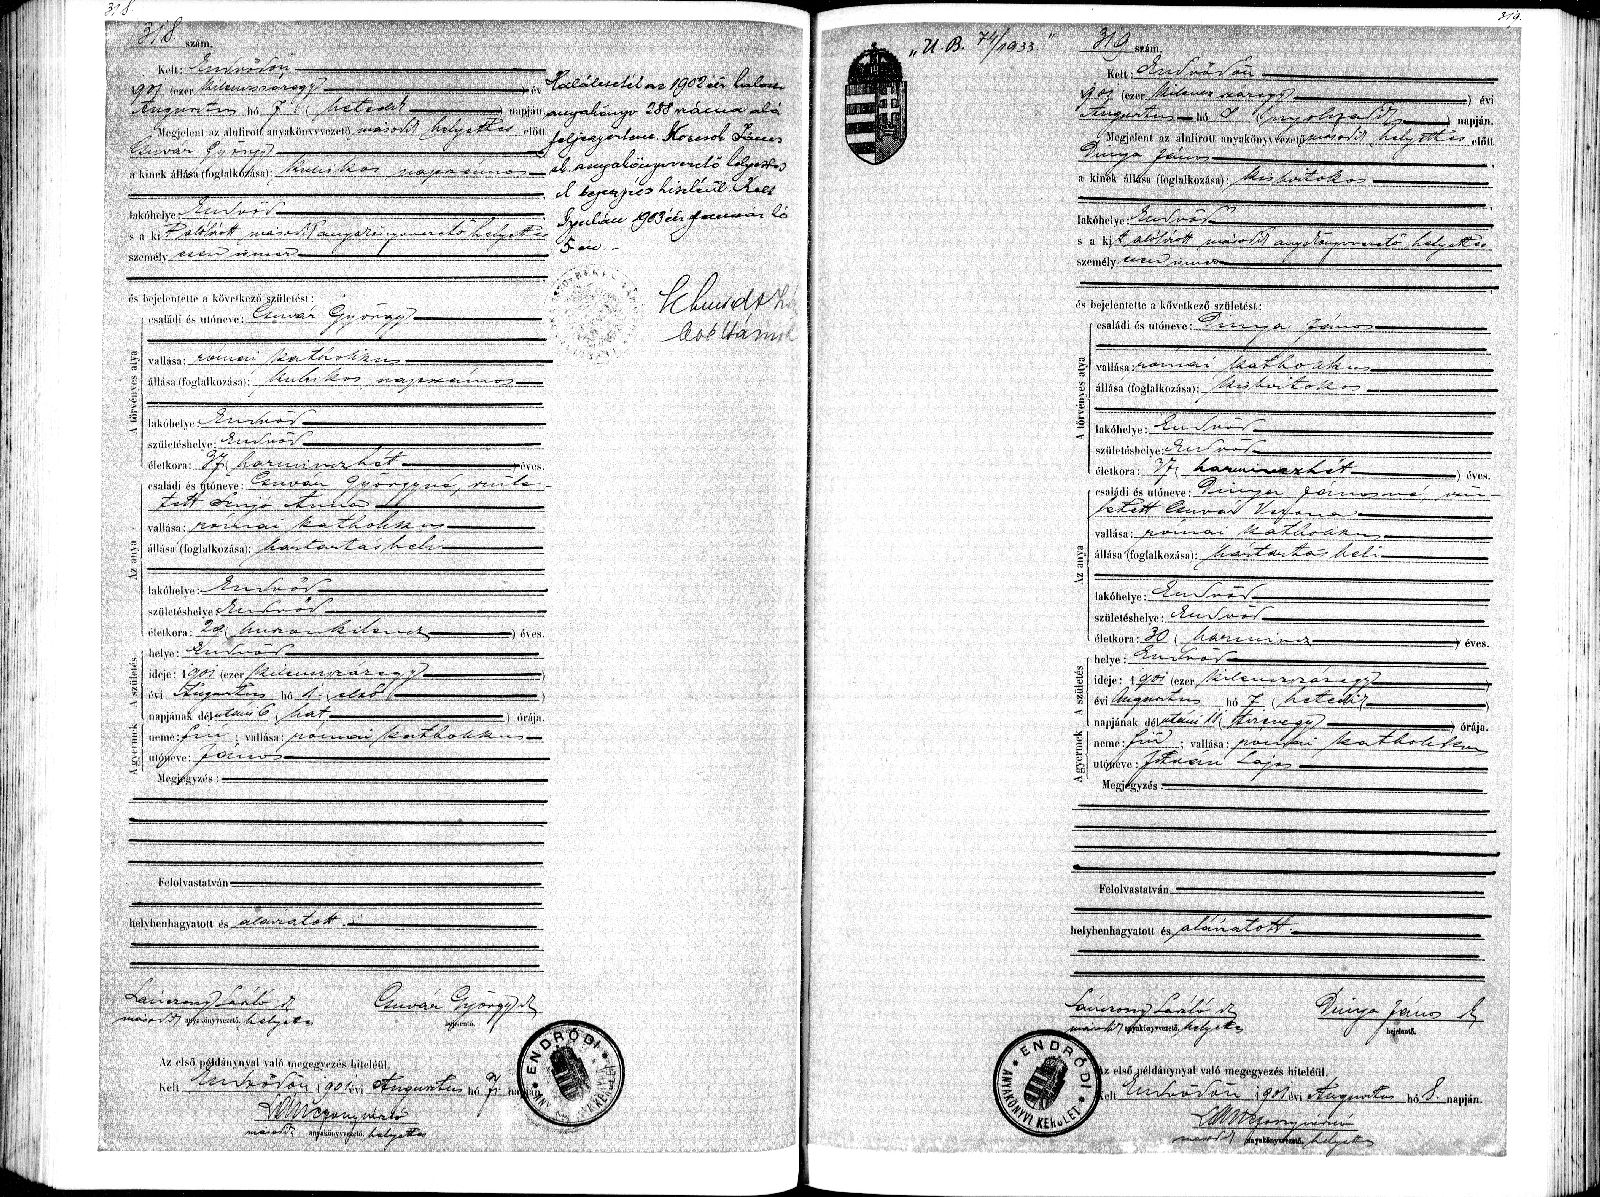 318.
318 szám.
Kelt: Endrődön
901 (ezer kilenczszázegy) év
Augusztus hó 7 (hetedik) napján
Megjelent az alulirott anyakönyvvezető második helyettes előtt
Csuvár György
a kinek állása (foglalkozása): kubikos napszámos
lakóhelye: Endrőd
s a ki t alólirott második anyakönyvvezető helyettes
személyesen ismer
és bejelentette a következő születést:
A törvényes atya
családi és utóneve: Csuvár György
vallása: római katholikus
állása (foglalkozása): kubikos napszámos
lakóhelye: Endrőd
születéshelye: Endrőd
életkora: 37 (harminczhét) éves.
Az anya
családi és utóneve: Csuvár Györgyné, szüle-
tett Anna
vallása: római katholikus
állása (foglalkozása): háztartásbeli
lakóhelye: Endrőd
születéshelye: Endrőd
életkora: 29 (huszonkilencz) éves.
A születés
helye: Endrőd
ideje: 1901 (ezer kilenczszázegy)
évi Augusztus hó 1 (első)
napjának délutáni 6 (hat) órája.
A gyermek
neme: fiú; vallása: római katholikus
utóneve: János
Megjegyzés:
Felolvastatván
helybenhagyatott és aláiratott.
László
második anyakönyvvezető, helyettes
Csuvár György
bejelentő.
Az első példánynyal való megegyezés hiteléül.
Kelt Endrődön 1901 évi Augusztus hó 7. napján
második anyakönyvvezető, helyettes
ENDRŐDI ANYAKÖNYVI KERÜLET
Halálesetét az 1902 évi halotti
anyakönyv 288 száma alá
feljegyeztem. János
anyakönyvvezető helyettes
A bejegyzés hiteléül Kelt
Gyulán 1903 évi január hó
5-én
319.
„U. B. 74/1933."
319 szám.
Kelt: Endrődön
901 (ezer kilenczszázegy) évi
Augusztus hó 8 (nyolczadik) napján.
Megjelent az alulirott anyakönyvvezető második helyettes előtt
Dinya János
a kinek állása (foglalkozása): kisbirtokos
lakóhelye: Endrőd
s a ki t alólirott második anyakönyvvezető helyettes
személyesen ismer
és bejelentette a következő születést:
A törvényes atya
családi és utóneve: Dinya János
vallása: római katholikus
állása (foglalkozása): kisbirtokos
lakóhelye: Endrőd
születéshelye: Endrőd
életkora: 37 (harminczhét) éves.
Az anya
családi és utóneve: Dinya Jánosné szü-
letett Csuvár Verona
vallása: római katholikus
állása (foglalkozása): háztartásbeli
lakóhelye: Endrőd
születéshelye: Endrőd
életkora: 30 (harmincz) éves.
A születés
helye: Endrőd
ideje: 1901 (ezer kilenczszázegy)
évi Augusztus hó 7 (hetedik)
napjának délutáni 11 (tizenegy) órája.
A gyermek
neme: fiú; vallása: római katholikus
utóneve: István Lajos
Megjegyzés:
Felolvastatván
helybenhagyatott és aláiratott.
László
második anyakönyvvezető, helyettes
Dinya János
bejelentő.
Az első példánynyal való megegyezés hiteléül.
Kelt Endrődön 1901 évi Augusztus hó 8. napján.
második anyakönyvvezető, helyettes
ENDRŐDI ANYAKÖNYVI KERÜLET